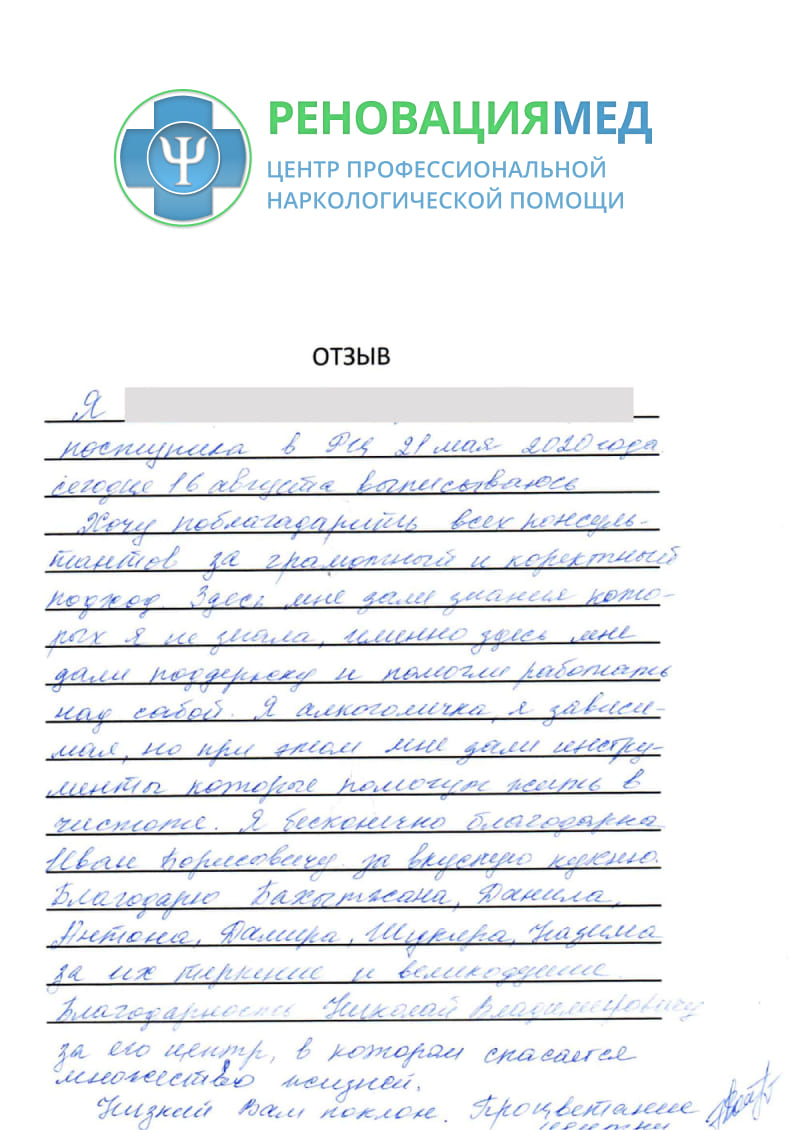 РЕНОВАЦИЯМЕД
ЦЕНТР ПРОФЕССИОНАЛЬНОЙ
НАРКОЛОГИЧЕСКОЙ ПОМОЩИ
ОТЗЫВ
Я
поступила в РЦ 21 мая 2020 года
сегодне 16 августа выписываюсь
Хочу поблагадарить всех консуль-
тантов за грамотный и коректный
подход. Здесь мне дали знания кото-
рых я не знала, именно здесь мне
дали поддержку и помогли работать
над сабой. Я алкоголичка, я зависи-
мая, но при этом мне дали инстру-
менты которые помогут жить в
чистоте. Я бесконично благодарна
Иван Борисовичу за вкусную кухню.
Благодарю Бахытжана, Данила,
Антона, Дамира, Шукира, Надима
за их терпение и великодушие.
Благодарность Николай Владимировичу
за его центр, в котором спасается
множество жизней.
Низкий Вам поклон. Процветание